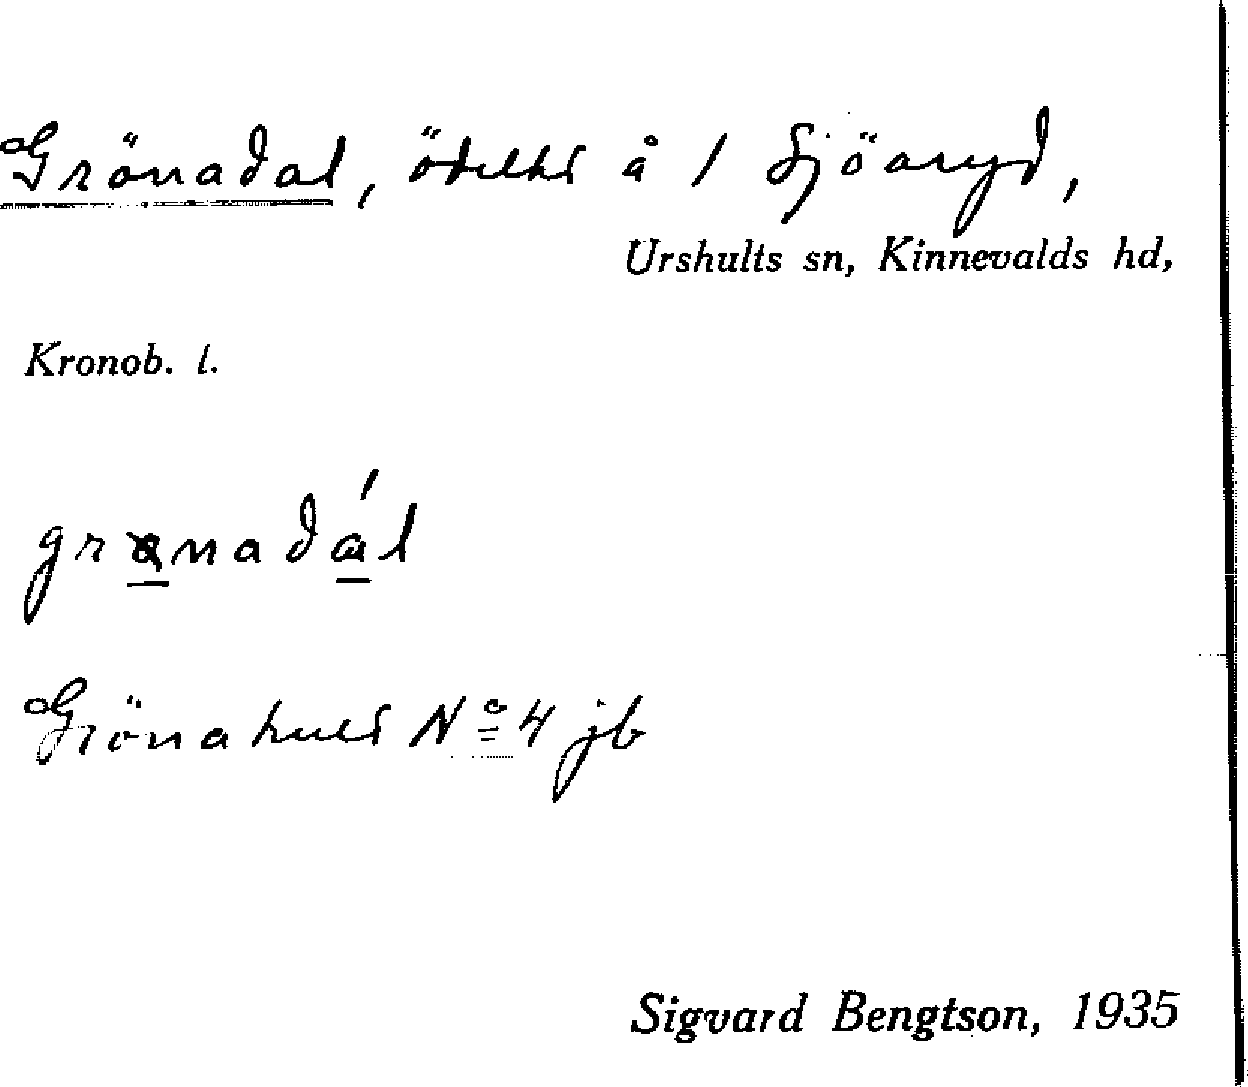 Grönadal, ödelht å 1 Sjöaryd,
Urshults sn, Kinnevalds hd,
Kronob. l.
Grönahult Nº 4 jb
Sigvard Bengtson, 1935